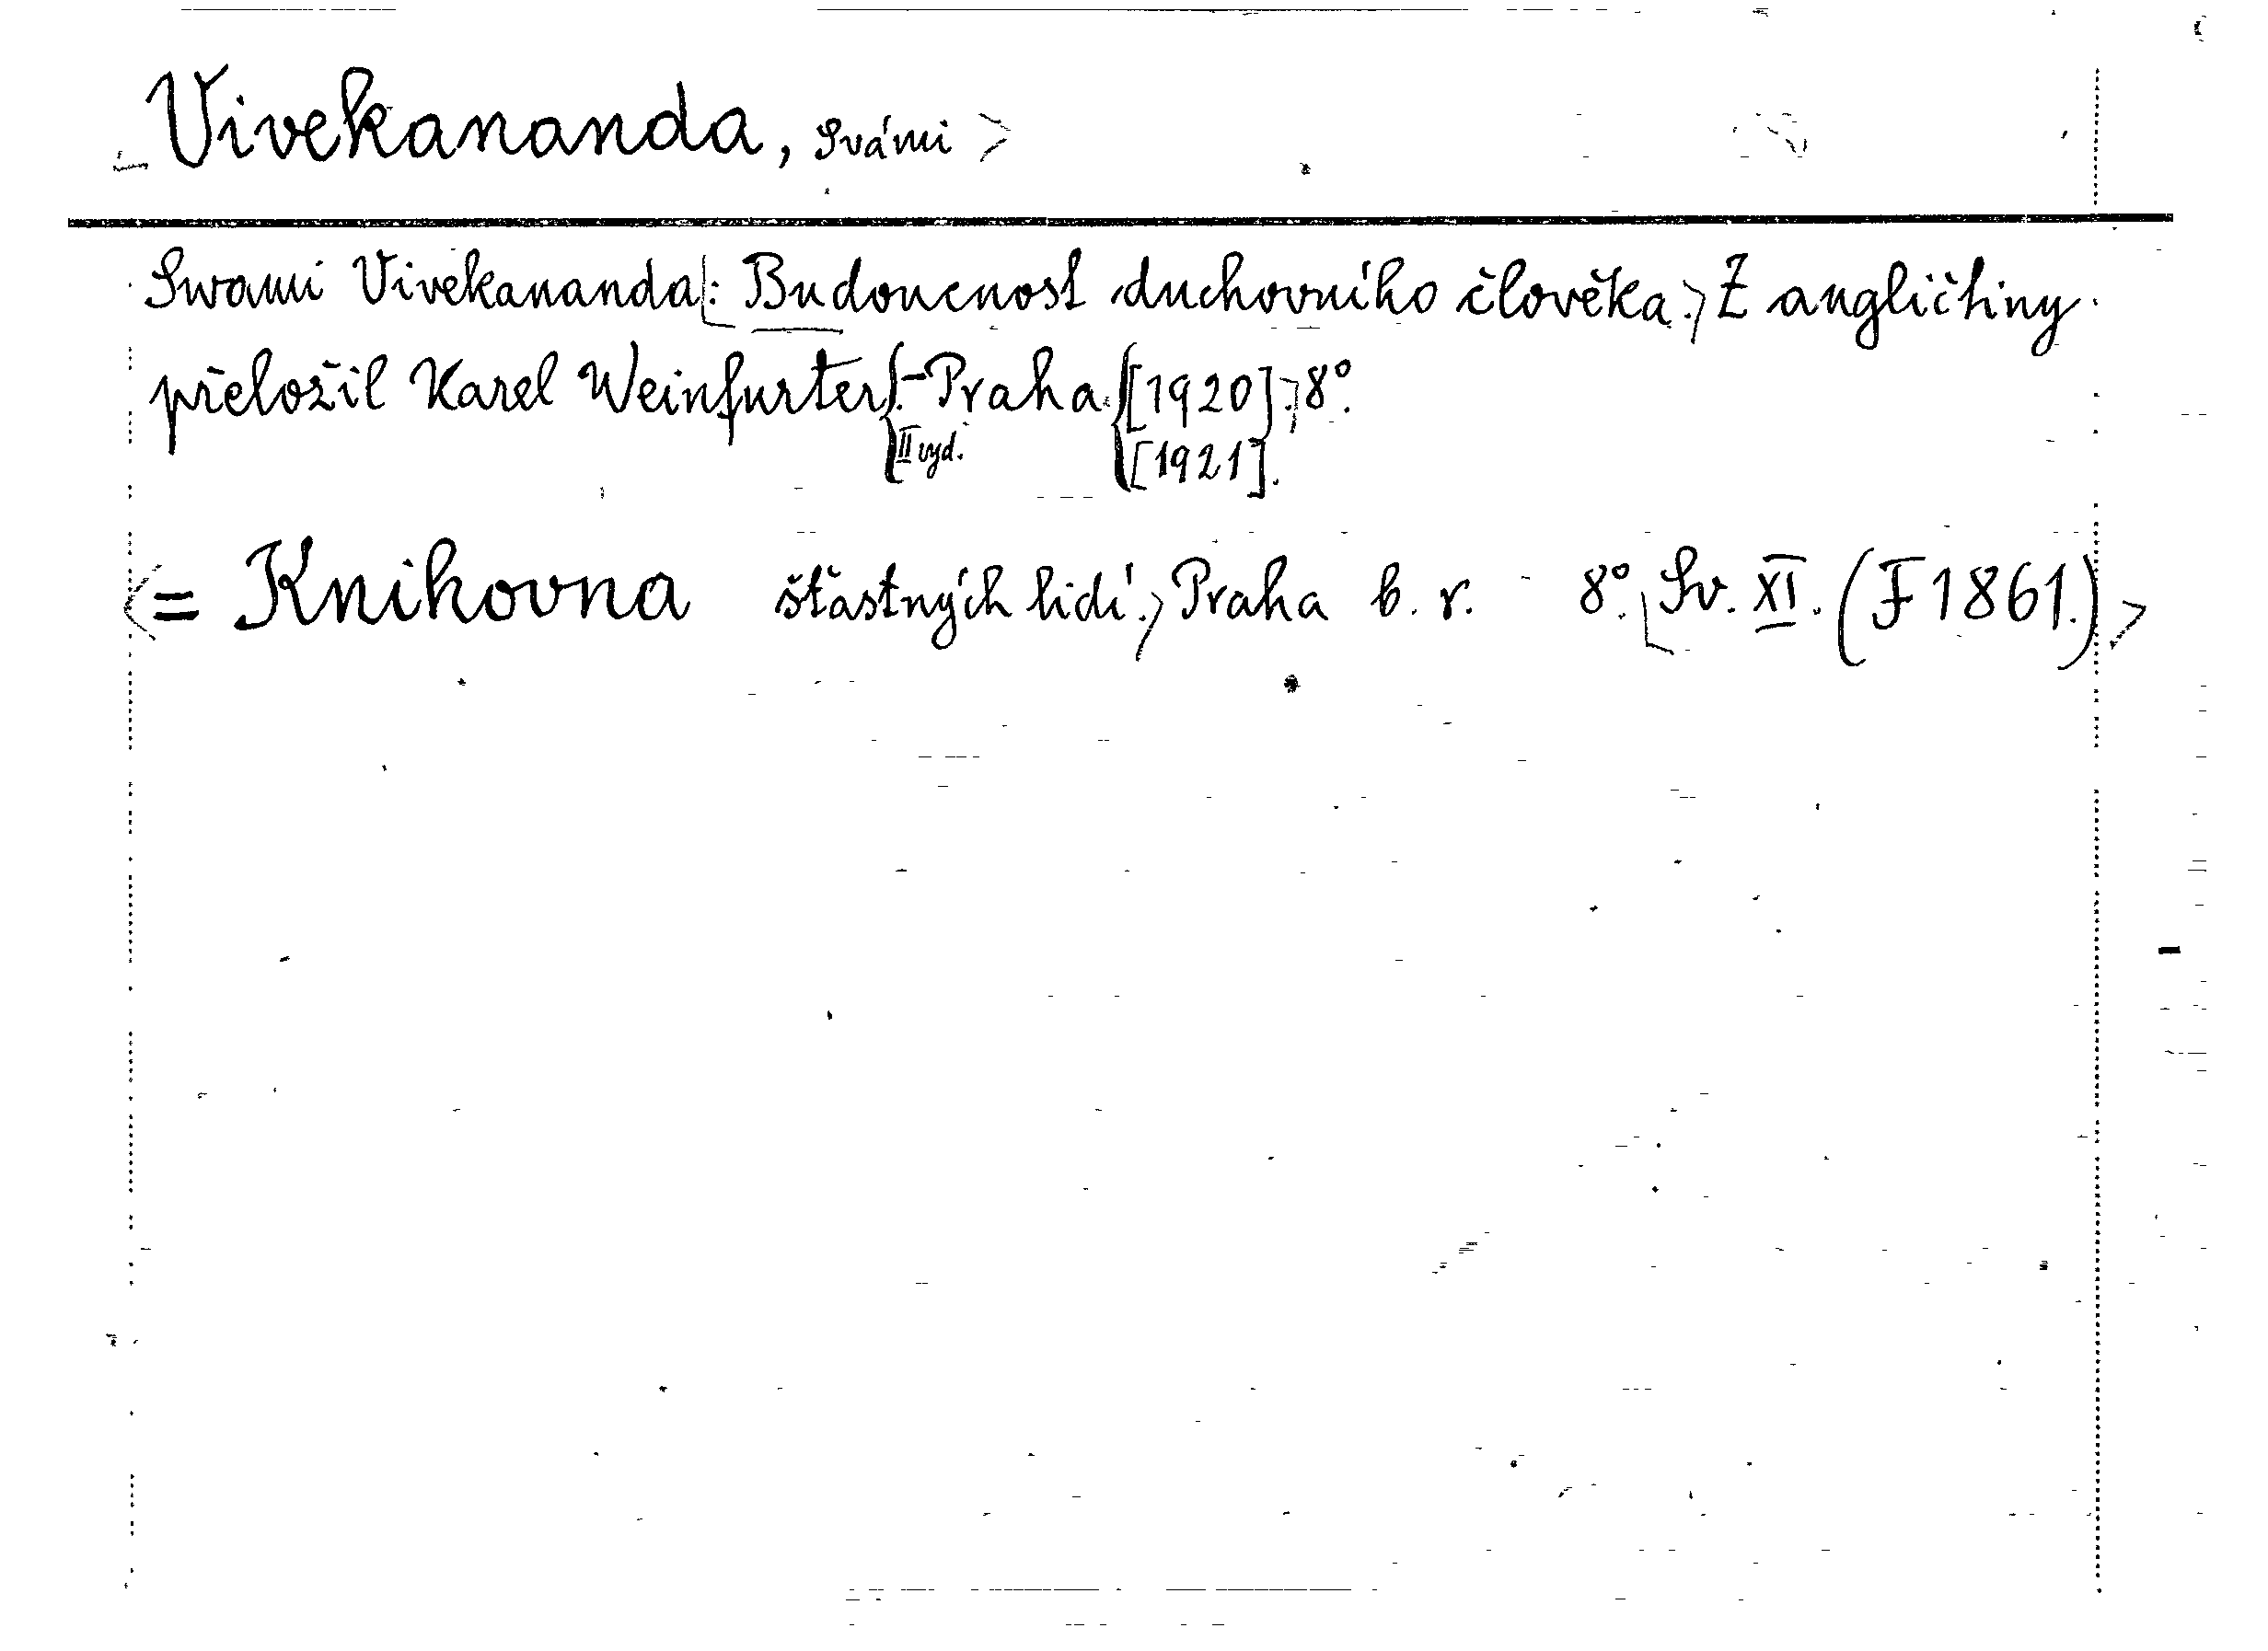 Vivekananda, Svámi >
Swami Vivekananda: Budoucnost duchovního člověka. Z angličtiny
přeložil Karel Weinfurter. - Praha [1920]. 8°.
II vyd. [1921].
= Knihovna šťastných lidí. Praha b. r. 8°. Sv. XI. (F 1861.)